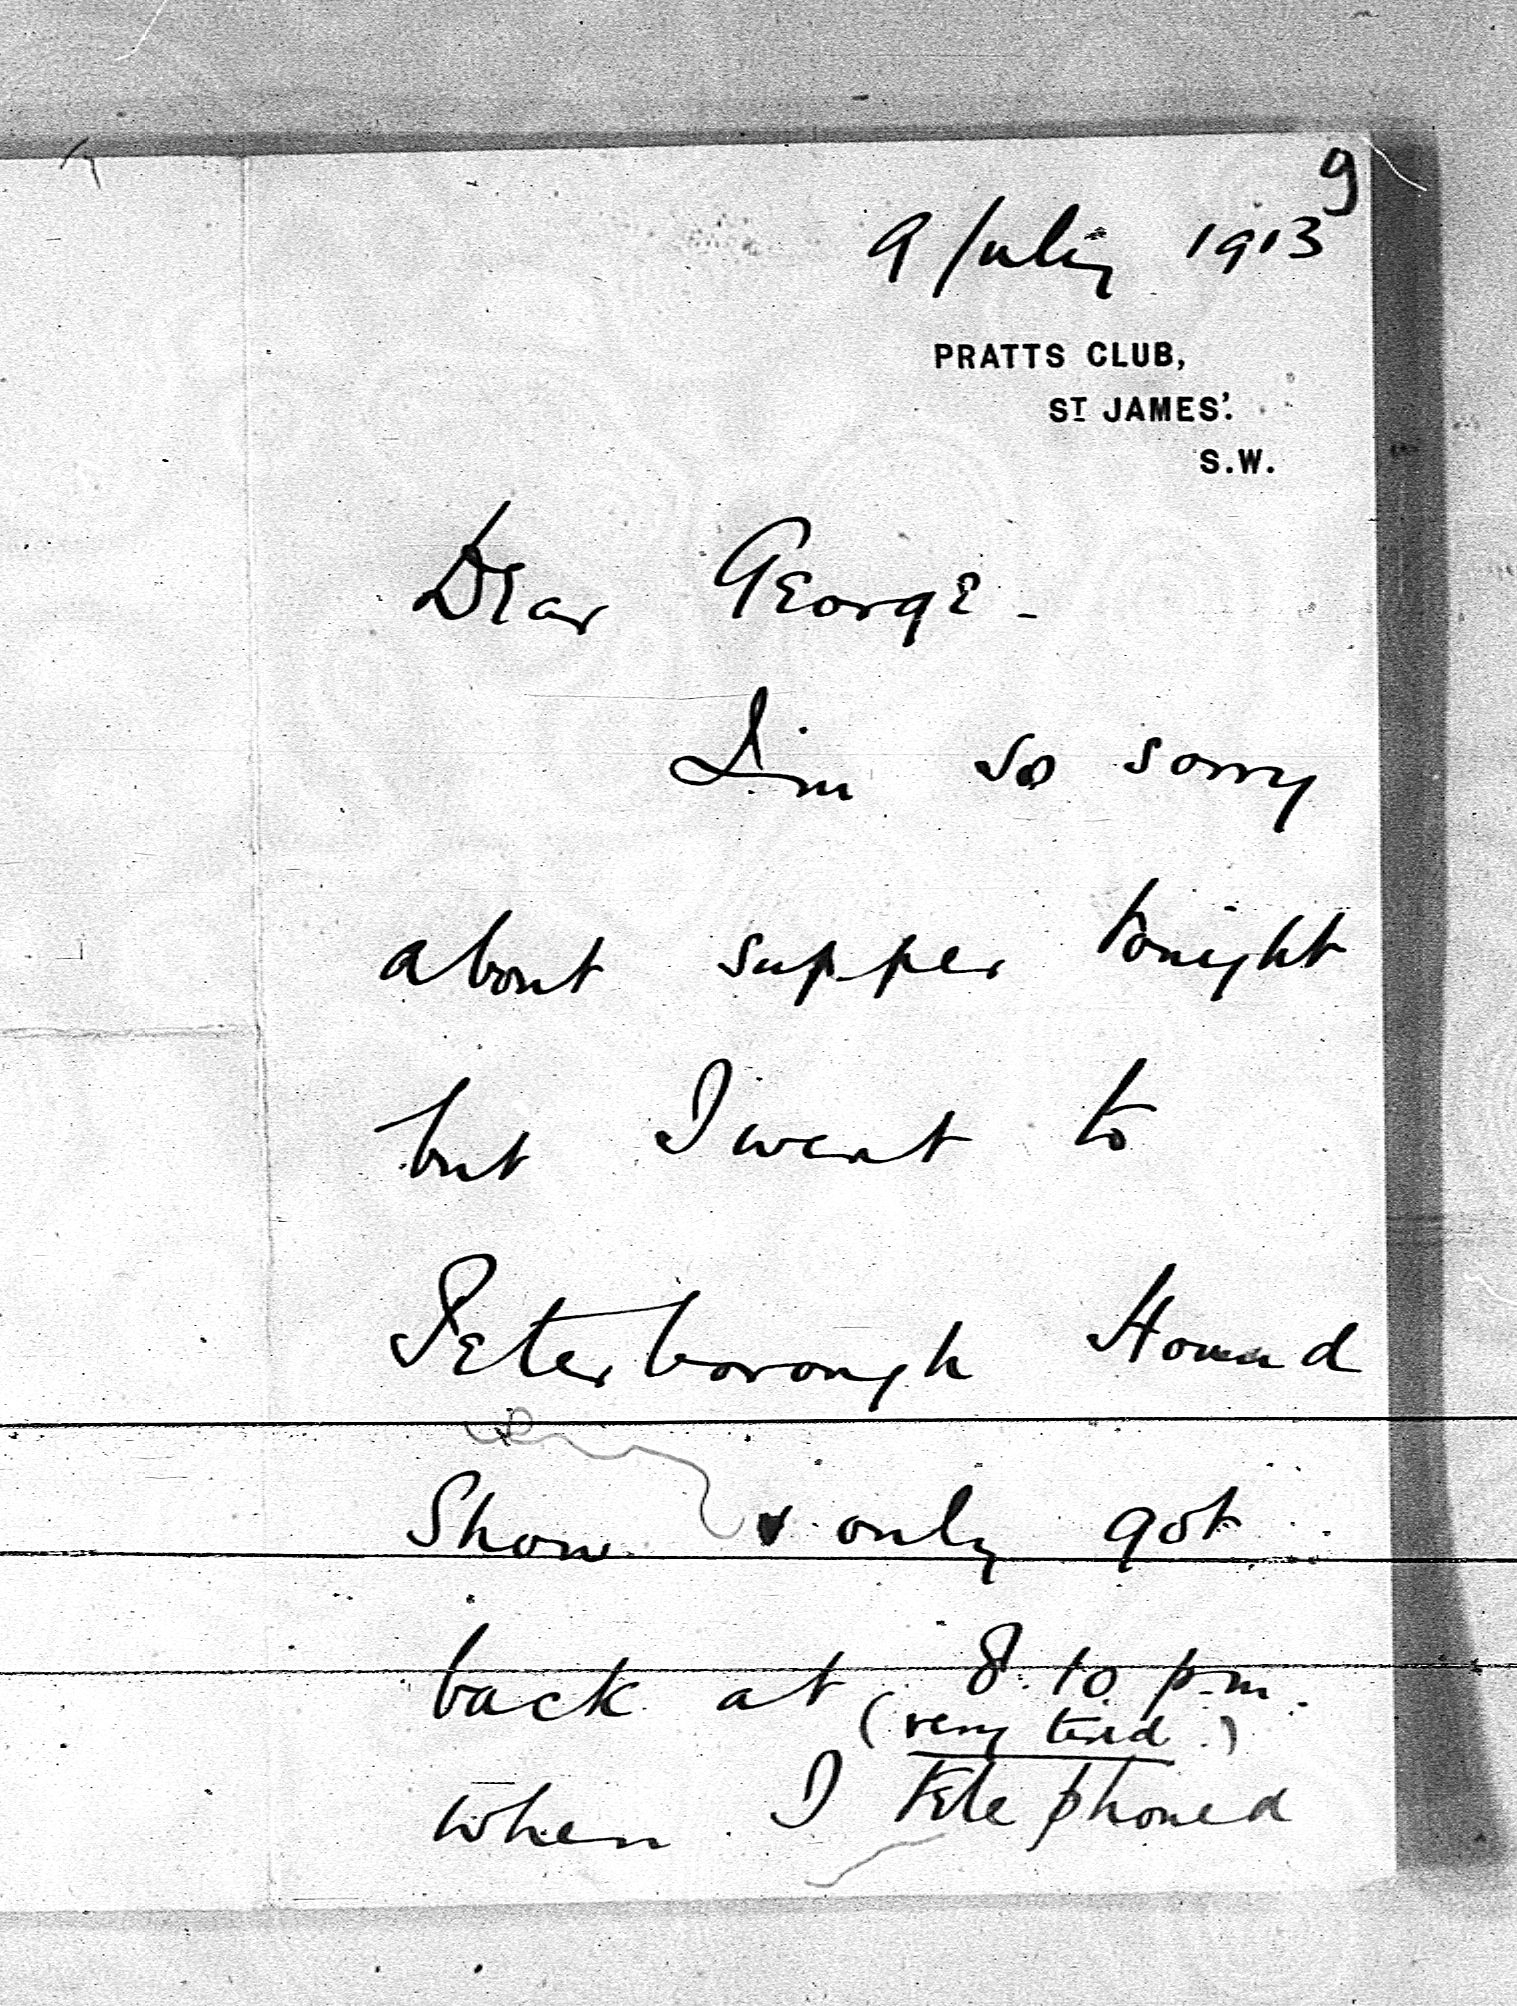 9
9 July 1913
PRATTS CLUB,
ST JAMES'.
S.W.
Dear George -
I'm so sorry
about supper tonight
but I went to
Peterborough Hound
Show & only got
back at 8.10 p.m.
(very tired.)
when I telephoned